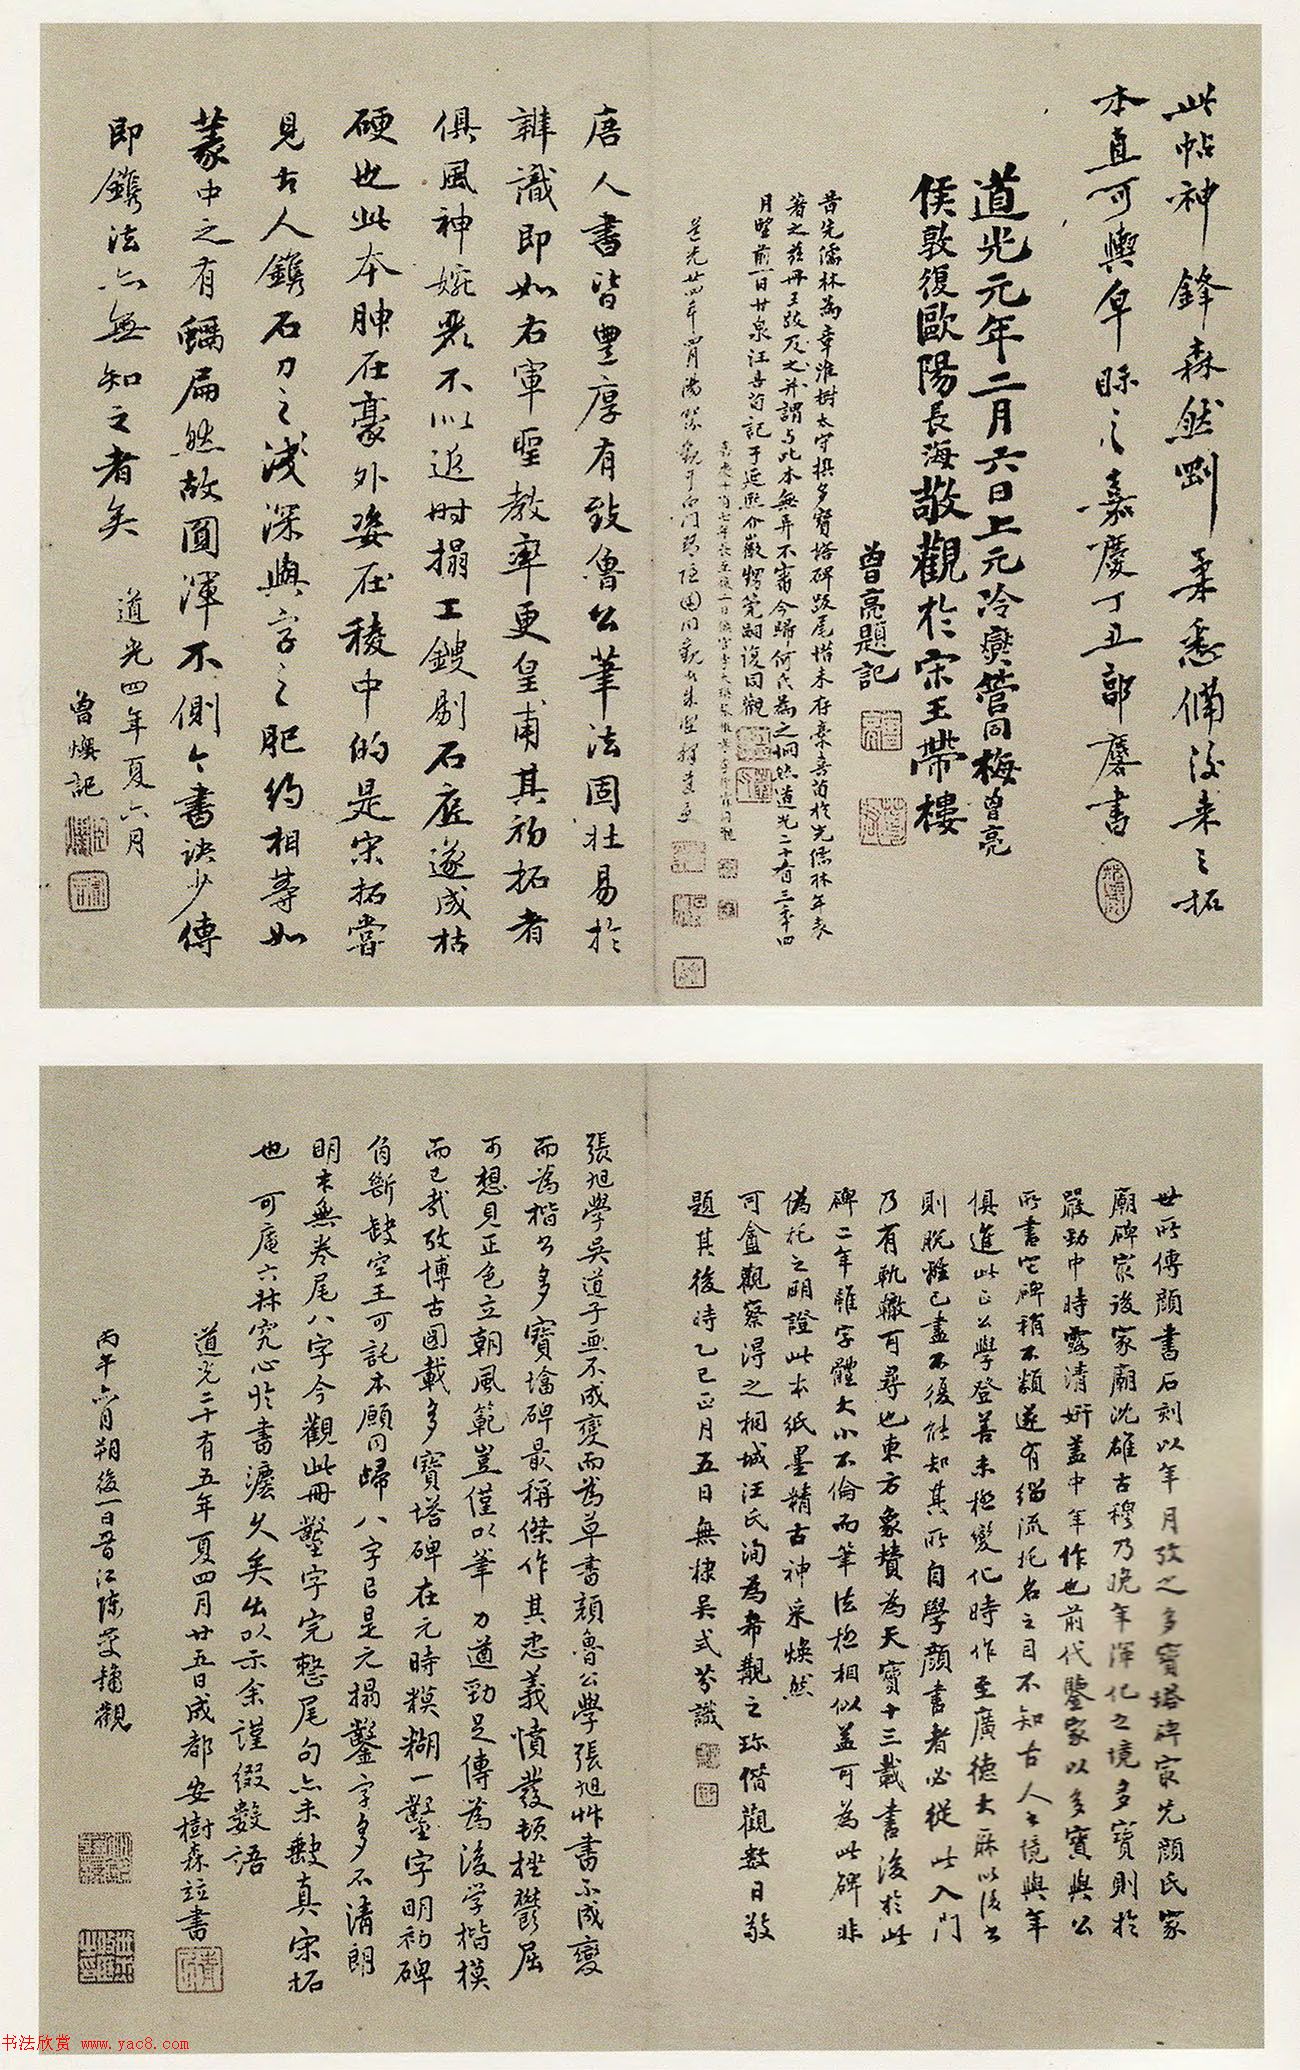 此帖神鋒森然剛柔悉備後來之拓
本直可輿皁眎之嘉慶丁丑部麐書
道光元年二月六日上元冷爕管同梅曾亮
侯敦復歐陽長海敬觀於宋王帶樓
曾亮題記
昔先儒林為韋淮樹太守撰多寶塔碑跋尾惜未存稾喜荀於先儒林年表
著之茲冊王跋及之并謂与此本無弄不甯今歸何氏為之惘然道光二十有三年四
月望前一日甘泉汪喜荀記子延熙介徽甥莞嗣復同觀
道光廿四年
唐人書皆豐厚有致魯公筆法固壯易於
辨識即如右軍聖教率更皇甫其初拓者
俱風神婉麗不似近時搨工鎪剔石底遂成枯
硬也此本腴在豪外姿在稜中的是宋拓嘗
見古人鐫石刀之淺深與字之肥約相等如
篆中之有蠣扁然故圓渾不側今書訣少傳
即鐫法亦無知之者矣
道光四年夏六月
曾燠記
世所傳顏書石刻以年月攷之多寶塔碑家先顏氏家
廟碑家後家廟沈雄古穆乃晚年渾化之境多寶則於
嚴勁中時露清妍蓋中年作也前代鑒家以多寶與公
所書它碑稍不類遂有緇流托名之目不知古人書境與年
俱進此正公學登善未極變化時作至廣德大厤以後書
則脫離已盡不復能知其所自學顏書者必從此入門
乃有軌轍可尋也東方象贊為天寶十三載書後於此
碑二年雖字體大小不倫而筆法極相似益可為此碑非
偽托之明證此本紙墨精古神采煥然
可盦觀察得之桐城汪氏洵為希覯之珎借觀數日敬
題其後時乙巳正月五日無棣吴式芬識
張旭學吳道子画不成變而為草書顏魯公學張旭艸書不成變
而為楷公多寶墖碑最稱傑作其忠義憤發頓挫鬱屈
可想見正色立朝風範豈僅以筆力遒勁足傳為後學楷模
而已哉攷博古圖載多寶塔碑在元時糢糊一鑿字明初碑
角斷缺空王可託本願同歸八字已是元搨鑿字多不清朗
明末無卷尾八字今觀此冊鑿字完整尾句亦未缺真宋拓
也可庵六林究心於書灋久矣出以示余謹綴數語
道光二十有五年夏四月廿五日成都安樹森竝書
丙午六月朔後一日晋江陳慶鏞觀
书法欣赏 www.yac8.com